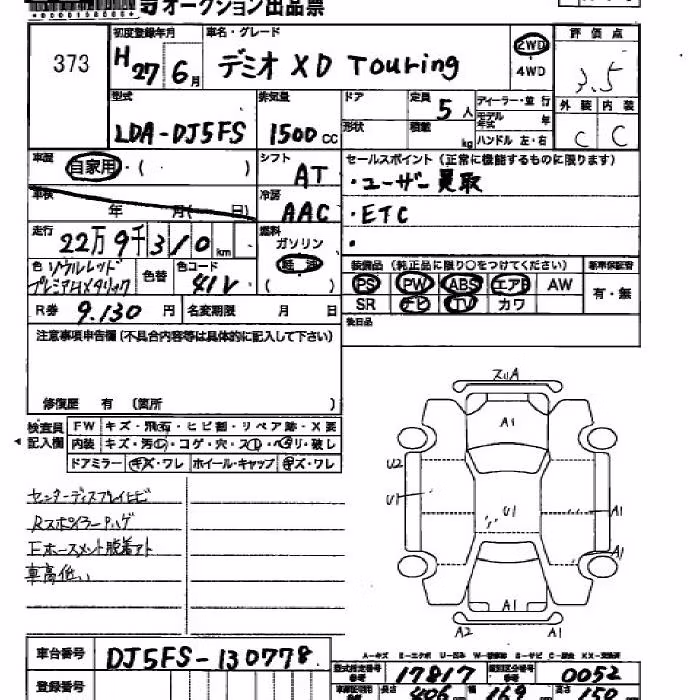 オークション出品票
373
初度登録年月
H27 6月
車名・グレード
デミオ XD Touring
2WD
4WD
評価点
3.5
型式
LDA-DJ5FS
排気量
1500 cc
ドア
形状
定員 5人
積載 kg
ディーラー・並行
モデル年式 年
ハンドル 左・右
外装 内装
C C
車歴
自家用・( )
シフト
AT
セールスポイント(正常に機能するものに限ります)
・ユーザー買取
・ETC
・
車検
年 月( 日)
冷房
AAC
走行
22万9千310 km
燃料
ガソリン
軽油
( )
色 ソウルレッド
プレミアムメタリック
色替
色コード
41V
装備品(純正品に限り○をつけてください)
PS PW ABS エアB AW
SR ナビ TV カワ
新車保証書
有・無
R券 9.130 円
名変期限 月 日
後日品
注意事項申告欄(不具合内容等は具体的に記入して下さい)
修復歴 有 (箇所 )
検査員
記入欄
FW キズ・飛石・ヒビ割・リペア跡・X要
内装 キズ・汚レ・コゲ・穴・スレ・ヘリ・破し
ドアミラー キズ・ワレ ホイール・キャップ キズ・ワレ
センターディスプレイヒビ
Rスポイラーハゲ
Fホースメント脱着アト
車高低い
スリA
A1
U2
U1
U1
A1
A1
A1
A2 A1
A-キズ E-エクボ U-凹ミ W-補修跡 S-サビ C-腐食 XX-交換済
車台番号
DJ5FS-130778
登録番号
型式指定番号
17817
類別区分番号
0052
長さ 406 幅 169 高さ 150